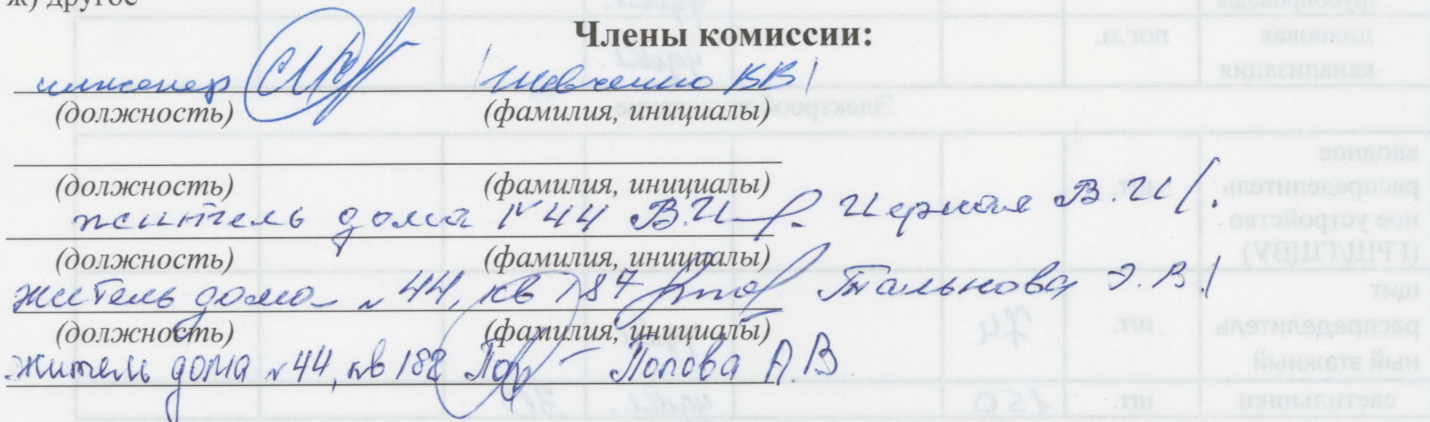 ж) другое
Члены комиссии:
инженер Шевченко ВВ/
(должность) (фамилия, инициалы)
(должность) (фамилия, инициалы)
житель дома №44 Черная В.И/.
(должность) (фамилия, инициалы)
житель дома №44, кв 187 Тальнова Э.В./
(должность) (фамилия, инициалы)
житель дома №44, кв 182 Попова А.В